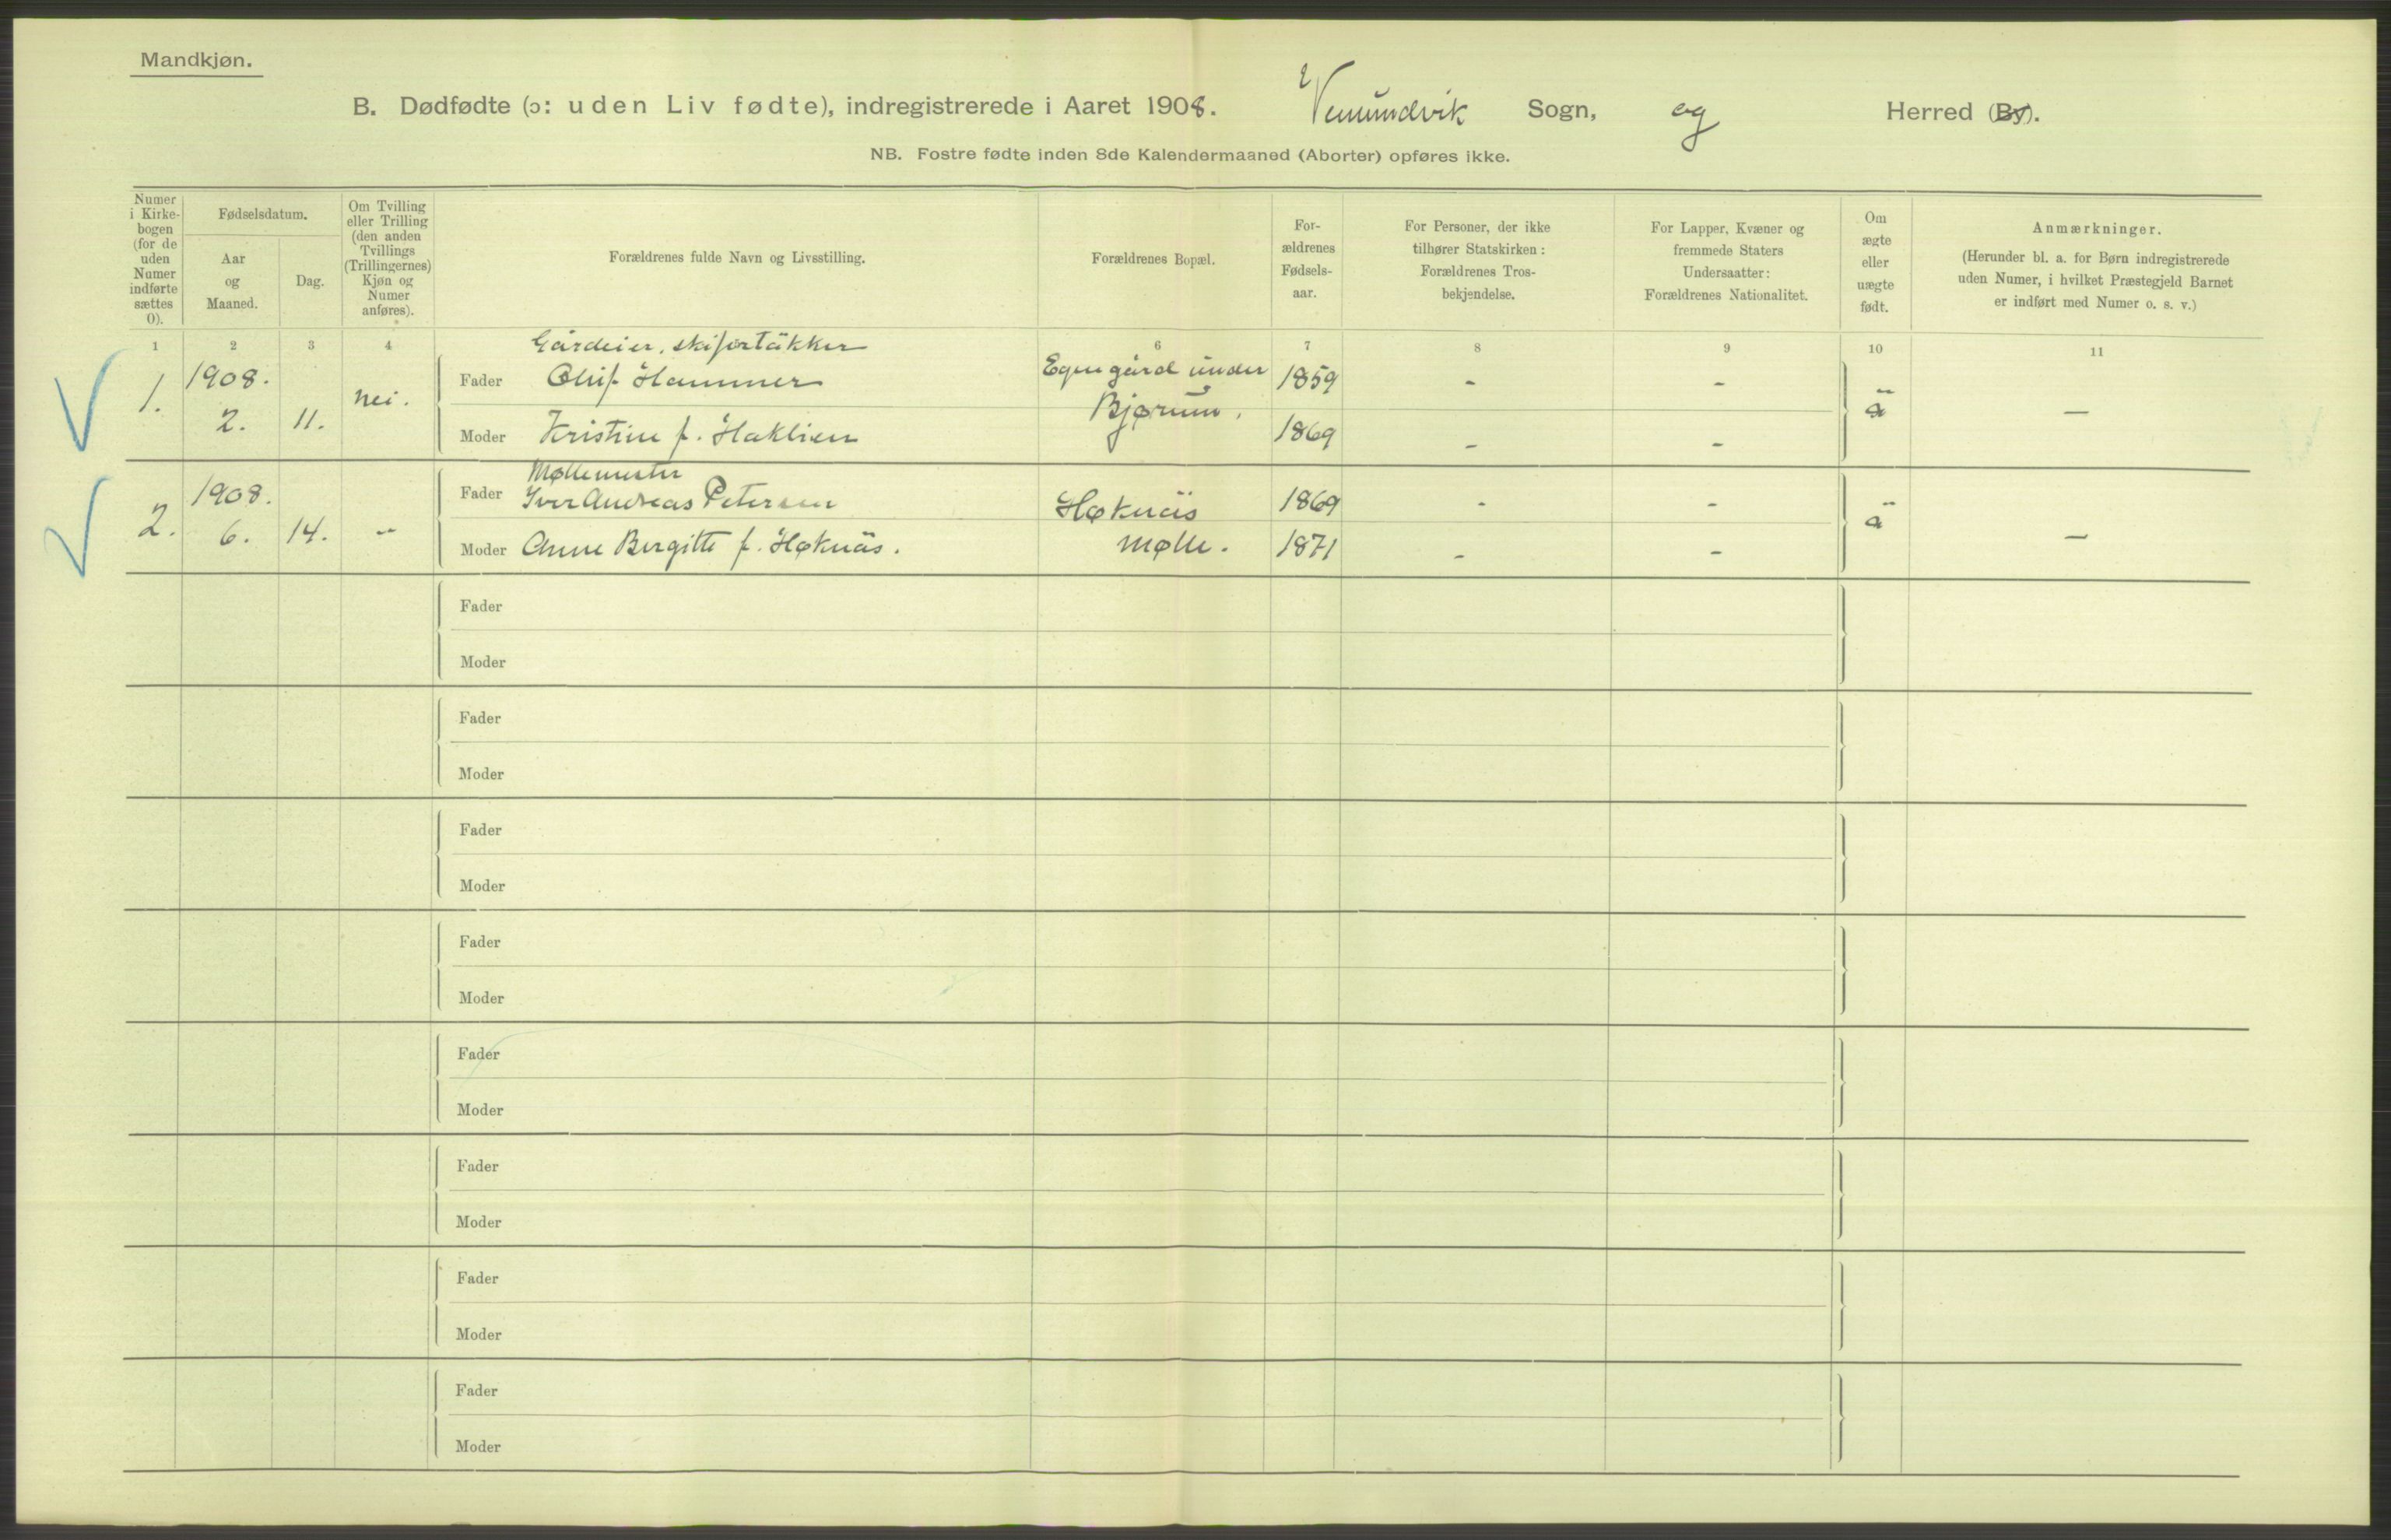 Mandkjøn.
B. Dødfødte (ɔ: uden Liv fødte), indregistrerede i Aaret 1908. Vemundvik Sogn, og Herred (By).
NB. Fostre fødte inden 8de Kalendermaaned (Aborter) opføres ikke.
Numer i Kirke-bogen (for de uden Numer indførte sættes 0).
Fødselsdatum.
Aar og Maaned.
Dag.
Om Tvilling eller Trilling (den anden Tvillings (Trillingernes) Kjøn og Numer anføres).
Forældrenes fulde Navn og Livsstilling.
Forældrenes Bopæl.
For-ældrenes Fødsels-aar.
For Personer, der ikke tilhører Statskirken: Forældrenes Tros-bekjendelse.
For Lapper, Kvæner og fremmede Staters Undersaatter: Forældrenes Nationalitet.
Om ægte eller uægte født.
Anmærkninger.
(Herunder bl. a. for Børn indregistrerede uden Numer, i hvilket Præstegjeld Barnet er indført med Numer o. s. v.)
1 2 3 4 6 7 8 9 10 11
Gårdeier, skifertäkker
1. 1908. 2. 11. nei. Fader Oluf Hammer Egnegård under Bjørum. 1859 - - ä —
Moder Kristine f. Haklien 1869 - -
Møllemester
2. 1908. 6. 14. - Fader Iver Andreas Petersen Høknäs Mølle. 1869 - - ä —
Moder Anne Bergitte f. Høknäs. 1871 - -
Fader
Moder
Fader
Moder
Fader
Moder
Fader
Moder
Fader
Moder
Fader
Moder
Fader
Moder
Fader
Moder